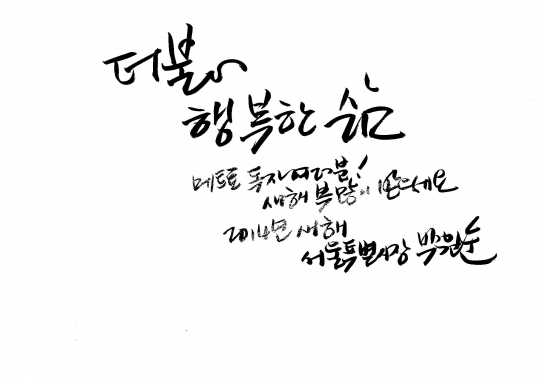 더불어
행복한 삶
메트로 독자여러분!
새해 복 많이 받으세요
2014년 새해
서울특별시장 박원순